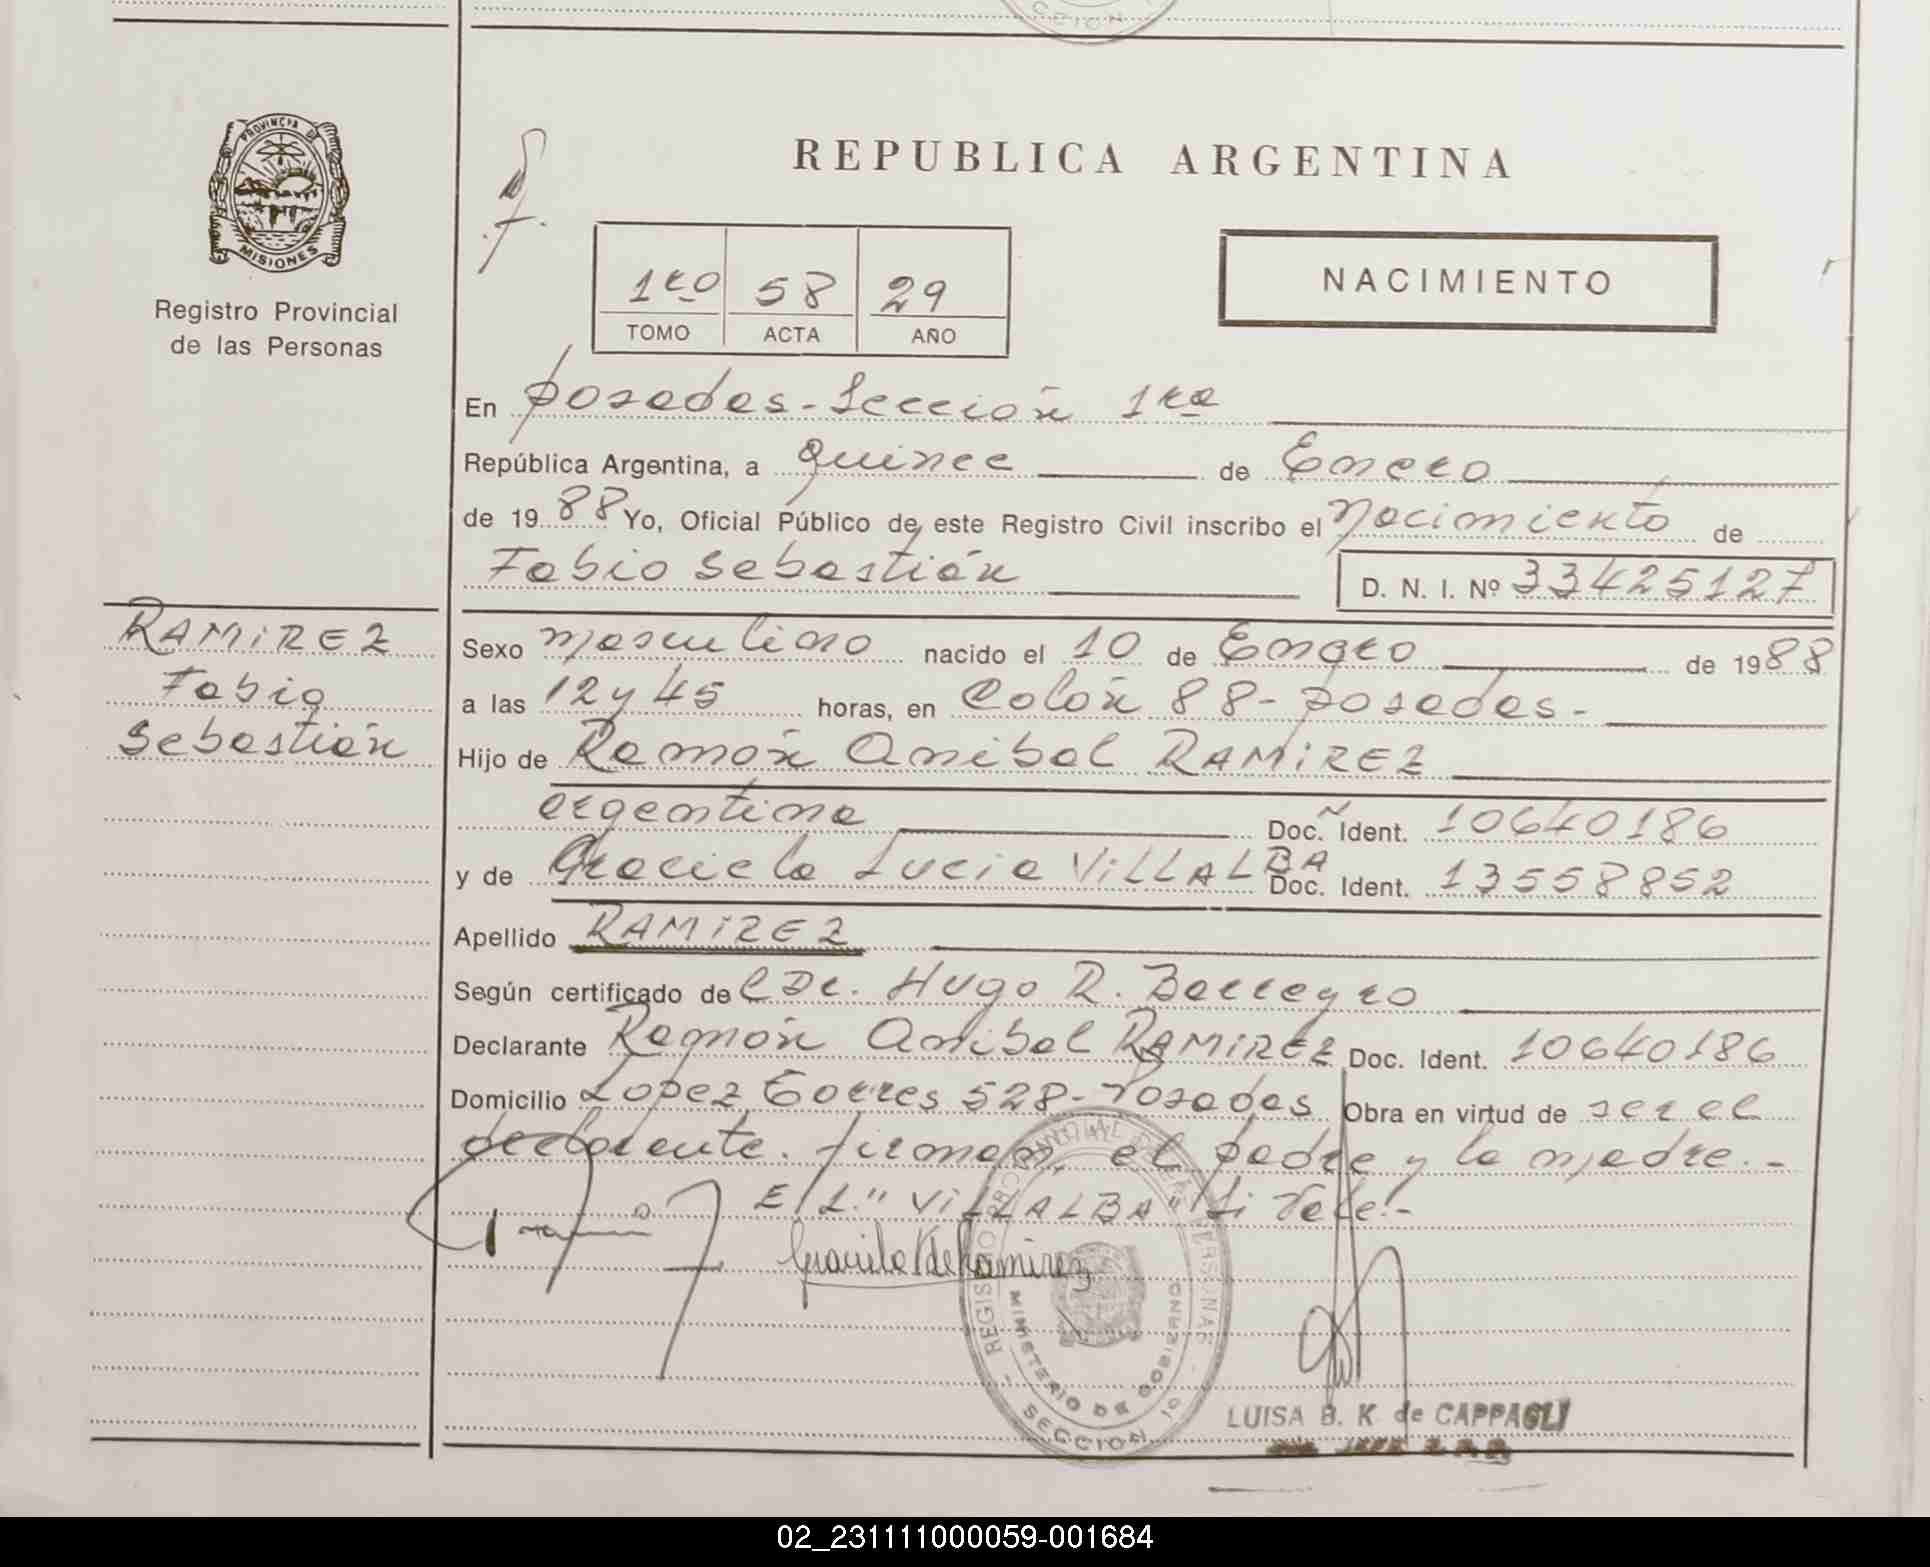 CCION
PROVINCIA DE
MISIONES
Registro Provincial
de las Personas
REPUBLICA ARGENTINA
1ro 58 29
TOMO ACTA AÑO
NACIMIENTO
En Posadas-Sección 1ra
República Argentina, a quince de Enero
de 1988 Yo, Oficial Público de este Registro Civil inscribo el Nacimiento de
Fabio Sebastián
D. N. I. Nº 33425127
RAMIREZ
Fabio
Sebastián
Sexo masculino nacido el 10 de Enero de 1988
a las 12 y 45 horas, en Colón 88-Posadas-
Hijo de Ramón Anibal RAMIREZ
argentina Doc. Ident. 10640186
y de Graciela Lucia VILLALBA Doc. Ident. 13558852
Apellido RAMIREZ
Según certificado del Dr. Hugo R. Barreyro
Declarante Ramón Anibal RAMIREZ Doc. Ident. 10640186
Domicilio Lopez Torres 528-Posadas Obra en virtud de ser el
declarante. firman, el padre y la madre.-
E/L." VILLALBA" Si Vale.-
Graciela V de Ramirez
REGISTRO PROVINCIAL DE LAS PERSONAS
MINISTERIO DE GOBIERNO
SECCION 1º
LUISA B. K de CAPPAGLI
02_231111000059-001684